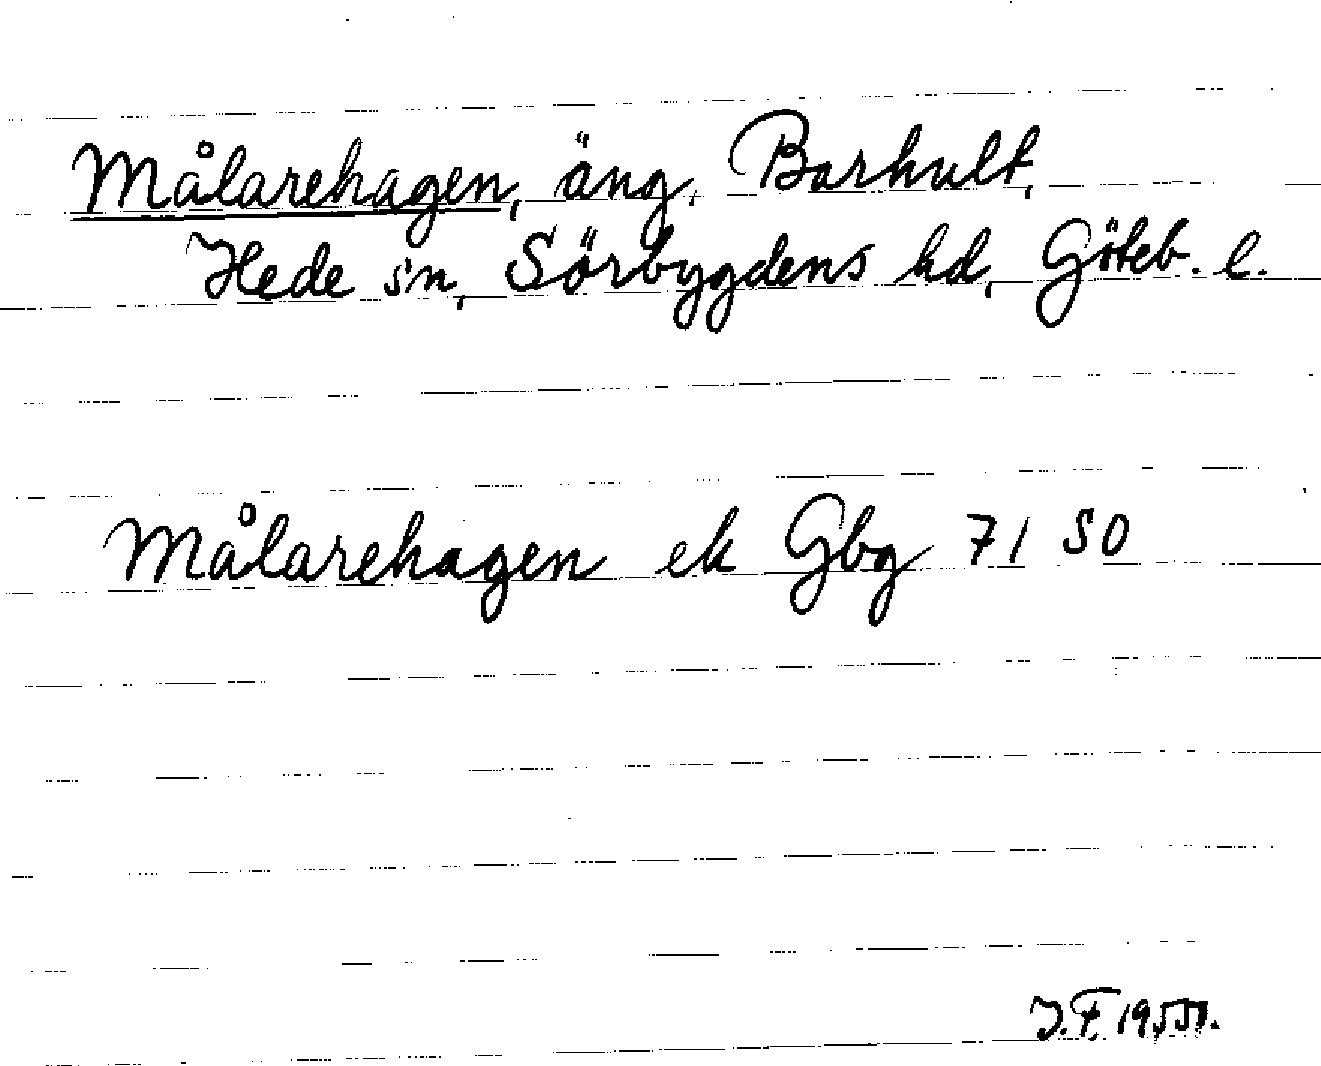 Målarehagen, äng, Barhult,
Hede sn, Sörbygdens hd, Göteb. l.
Målarehagen ek Gbg 71 SO
J.F. 1955.